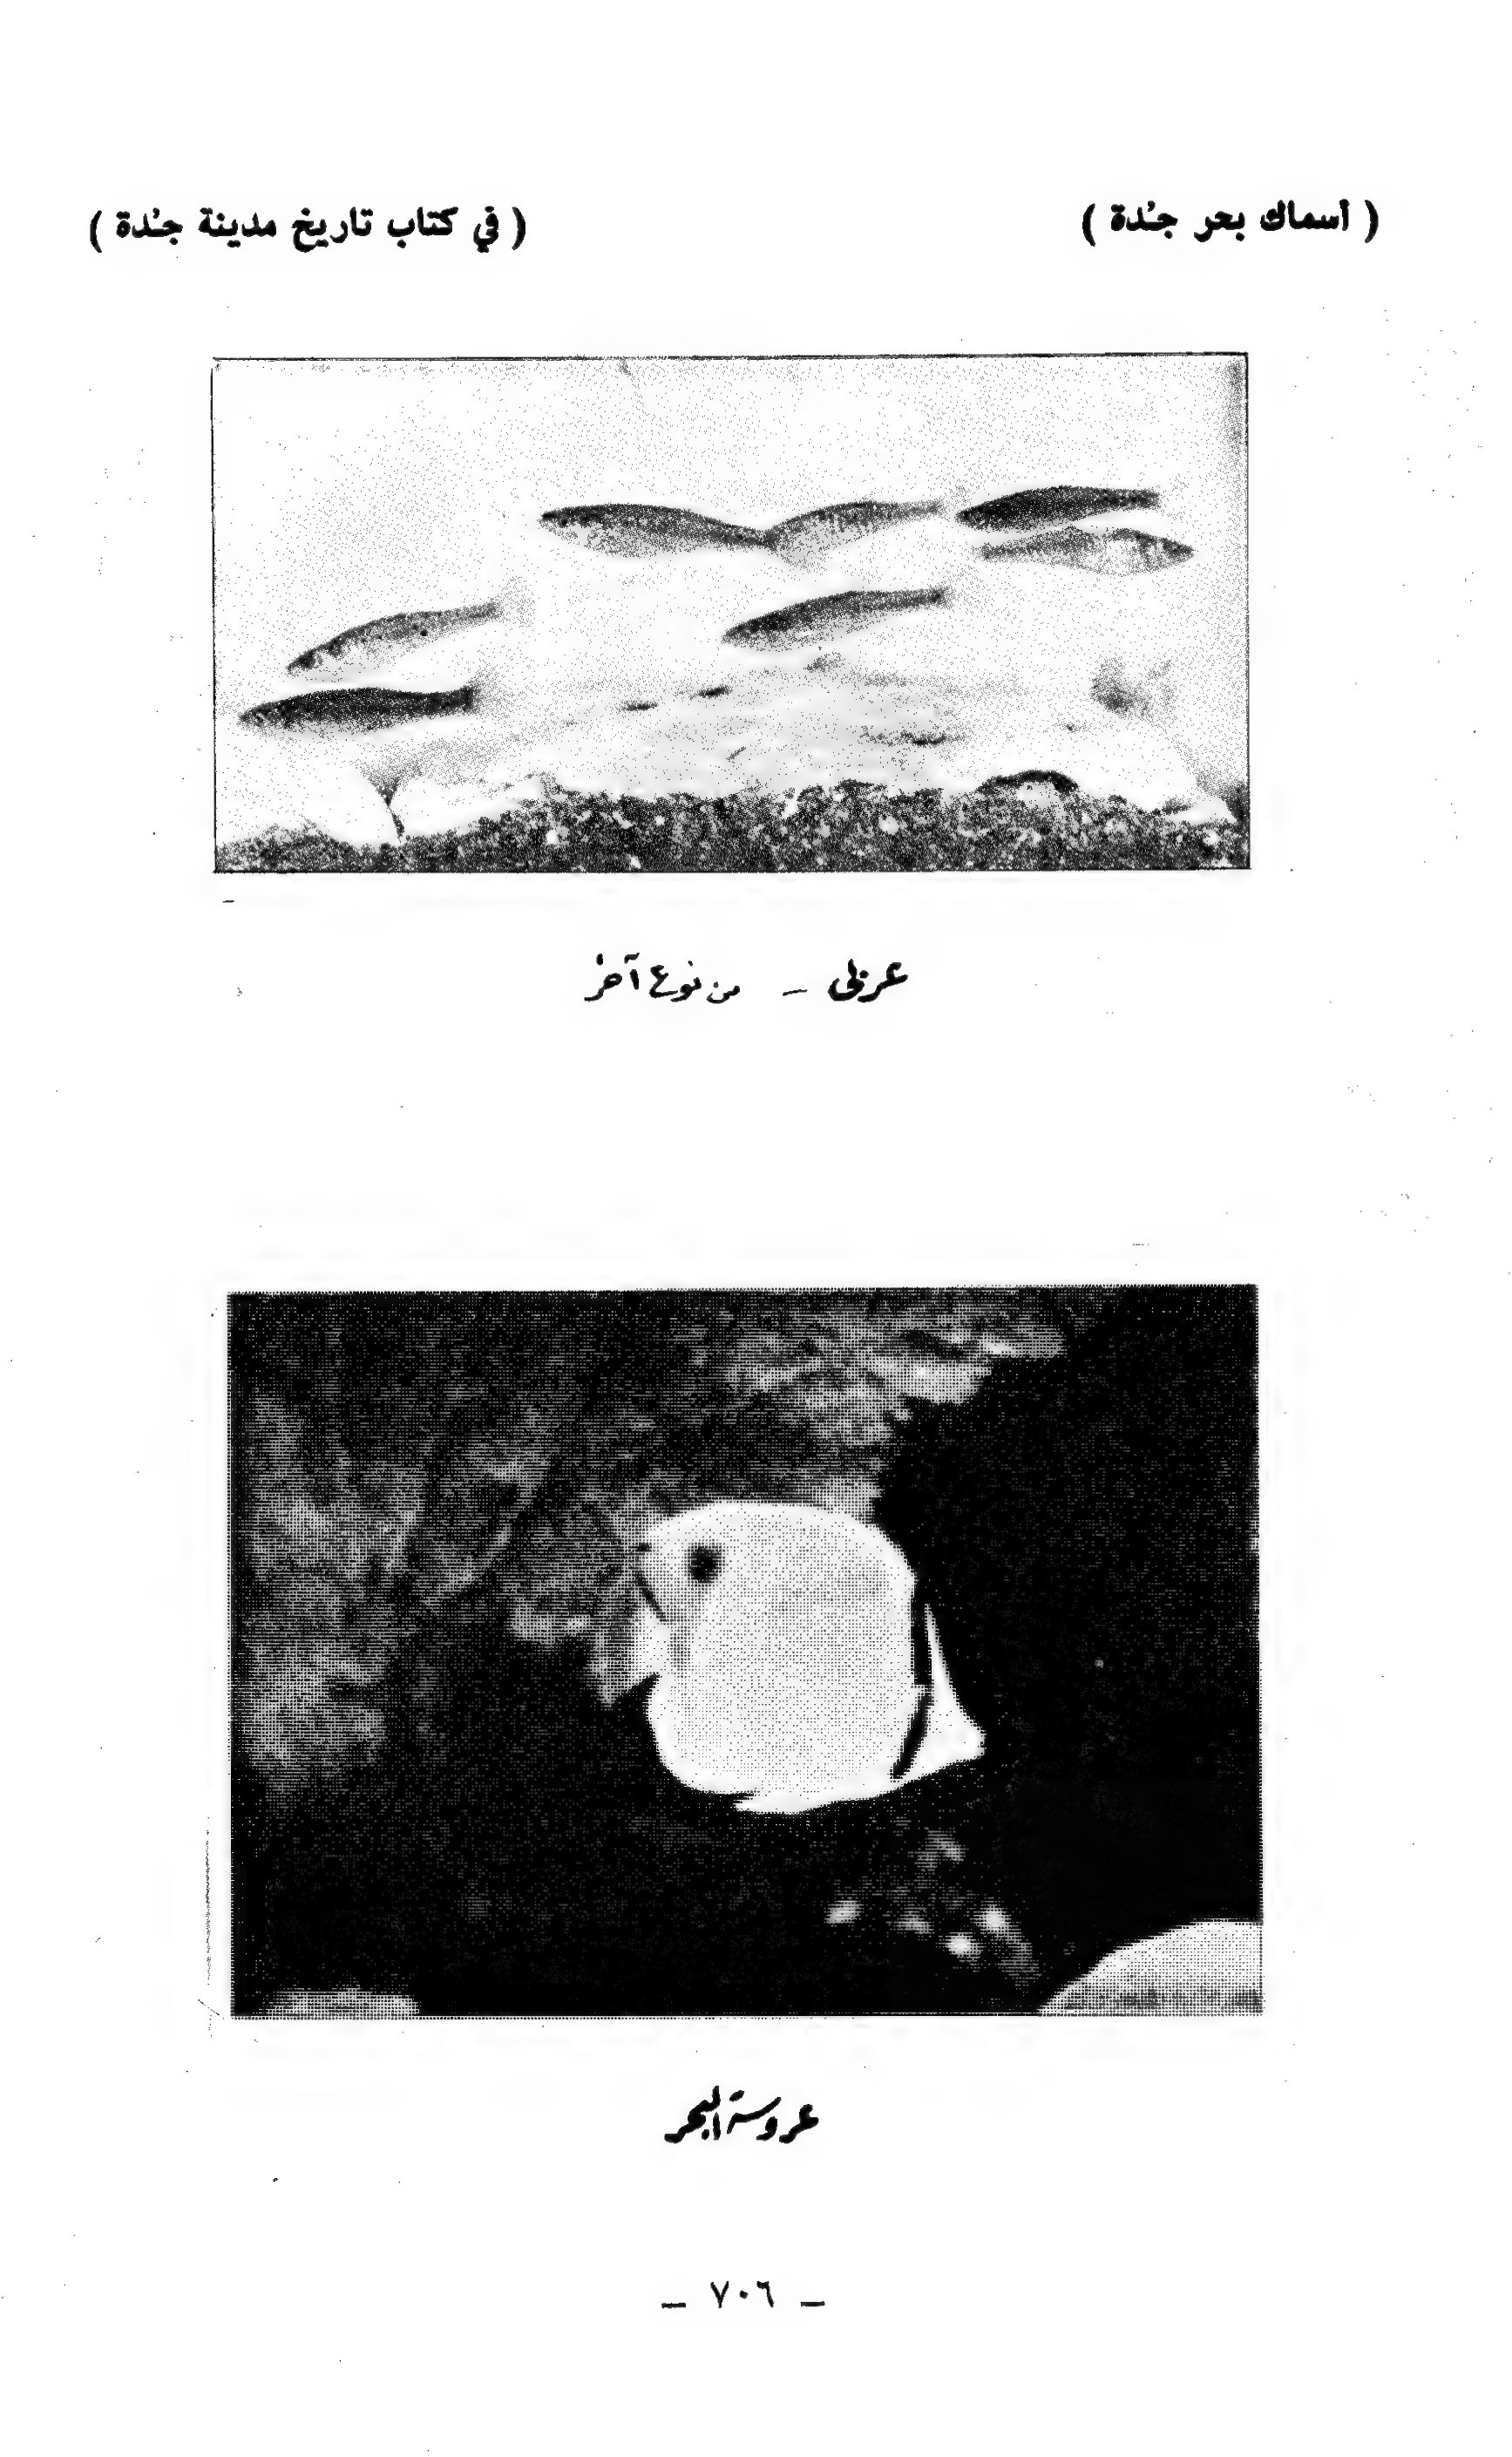 ( أسماك بحر جُدة )
( في كتاب تاريخ مدينة جُدة )
— من نوع آخر
عروسة البحر
— ٧٠٦ —